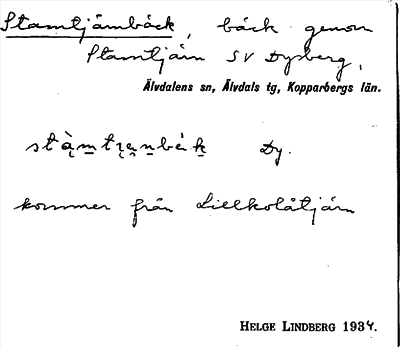 Stamtjärnbäck, bäck genom
Stamtjärn SV Dysberg,
Älvdalens sn, Älvdals tg, Kopparbergs län.
Dy.
kommer från Lillkolåtjärn
HELGE LINDBERG 1934.